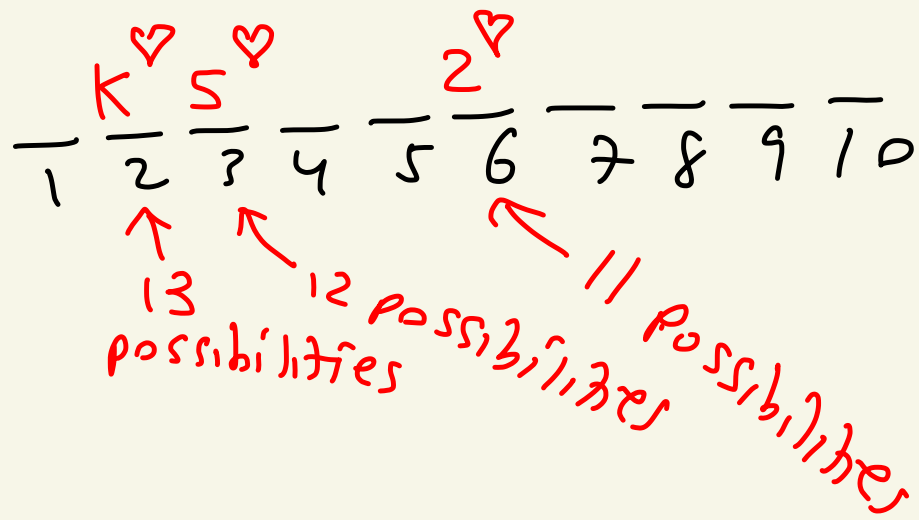 K♡ 5♡ 2♡
1 2 3 4 5 6 7 8 9 10
13 possibilities
12 possibilities
11 possibilities